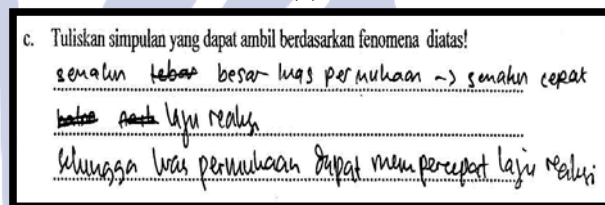 c. Tuliskan simpulan yang dapat ambil berdasarkan fenomena diatas!
semakin besar luas permukaan -> semakin cepat
laju reaksi
sehingga luas permukaan dapat mempercepat laju reaksi